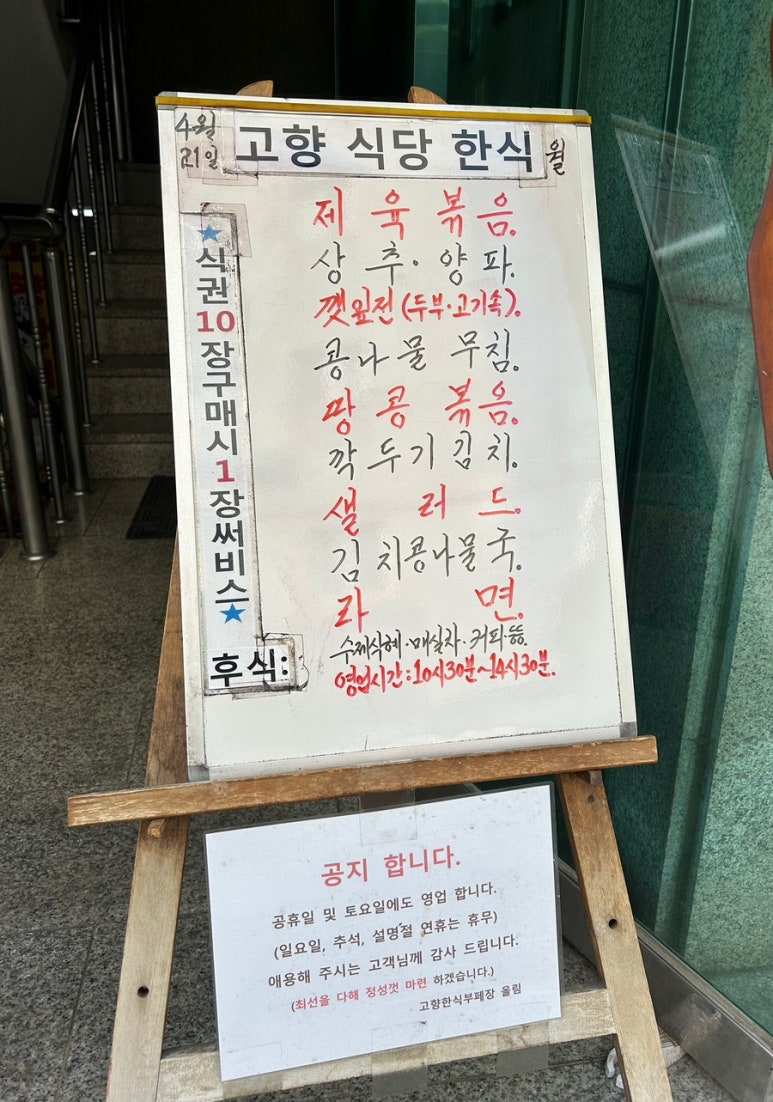 4월
21일
고향 식당 한식
월
제육볶음.
상추·양파.
깻잎전(두부·고기속).
콩나물 무침.
땅콩볶음.
깍두기김치.
샐러드.
김치콩나물국.
라면.
수제식혜·매실차·커피·뜽.
영업시간:10시30분~14시30분.
★식권10장구매시1장써비스★
후식:
공지 합니다.
공휴일 및 토요일에도 영업 합니다.
(일요일, 추석, 설명절 연휴는 휴무)
애용해 주시는 고객님께 감사 드립니다.
(최선을 다해 정성껏 마련 하겠습니다.)
고향한식부페장 올림